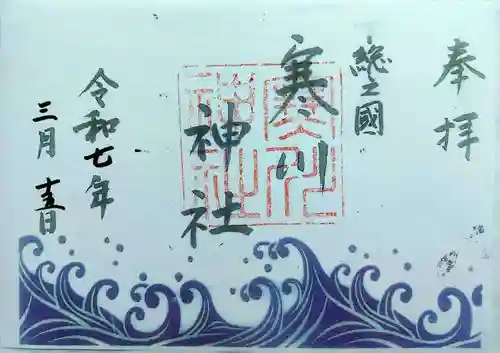 奉拝
総之國
寒川
神社
令和七年
三月十五日